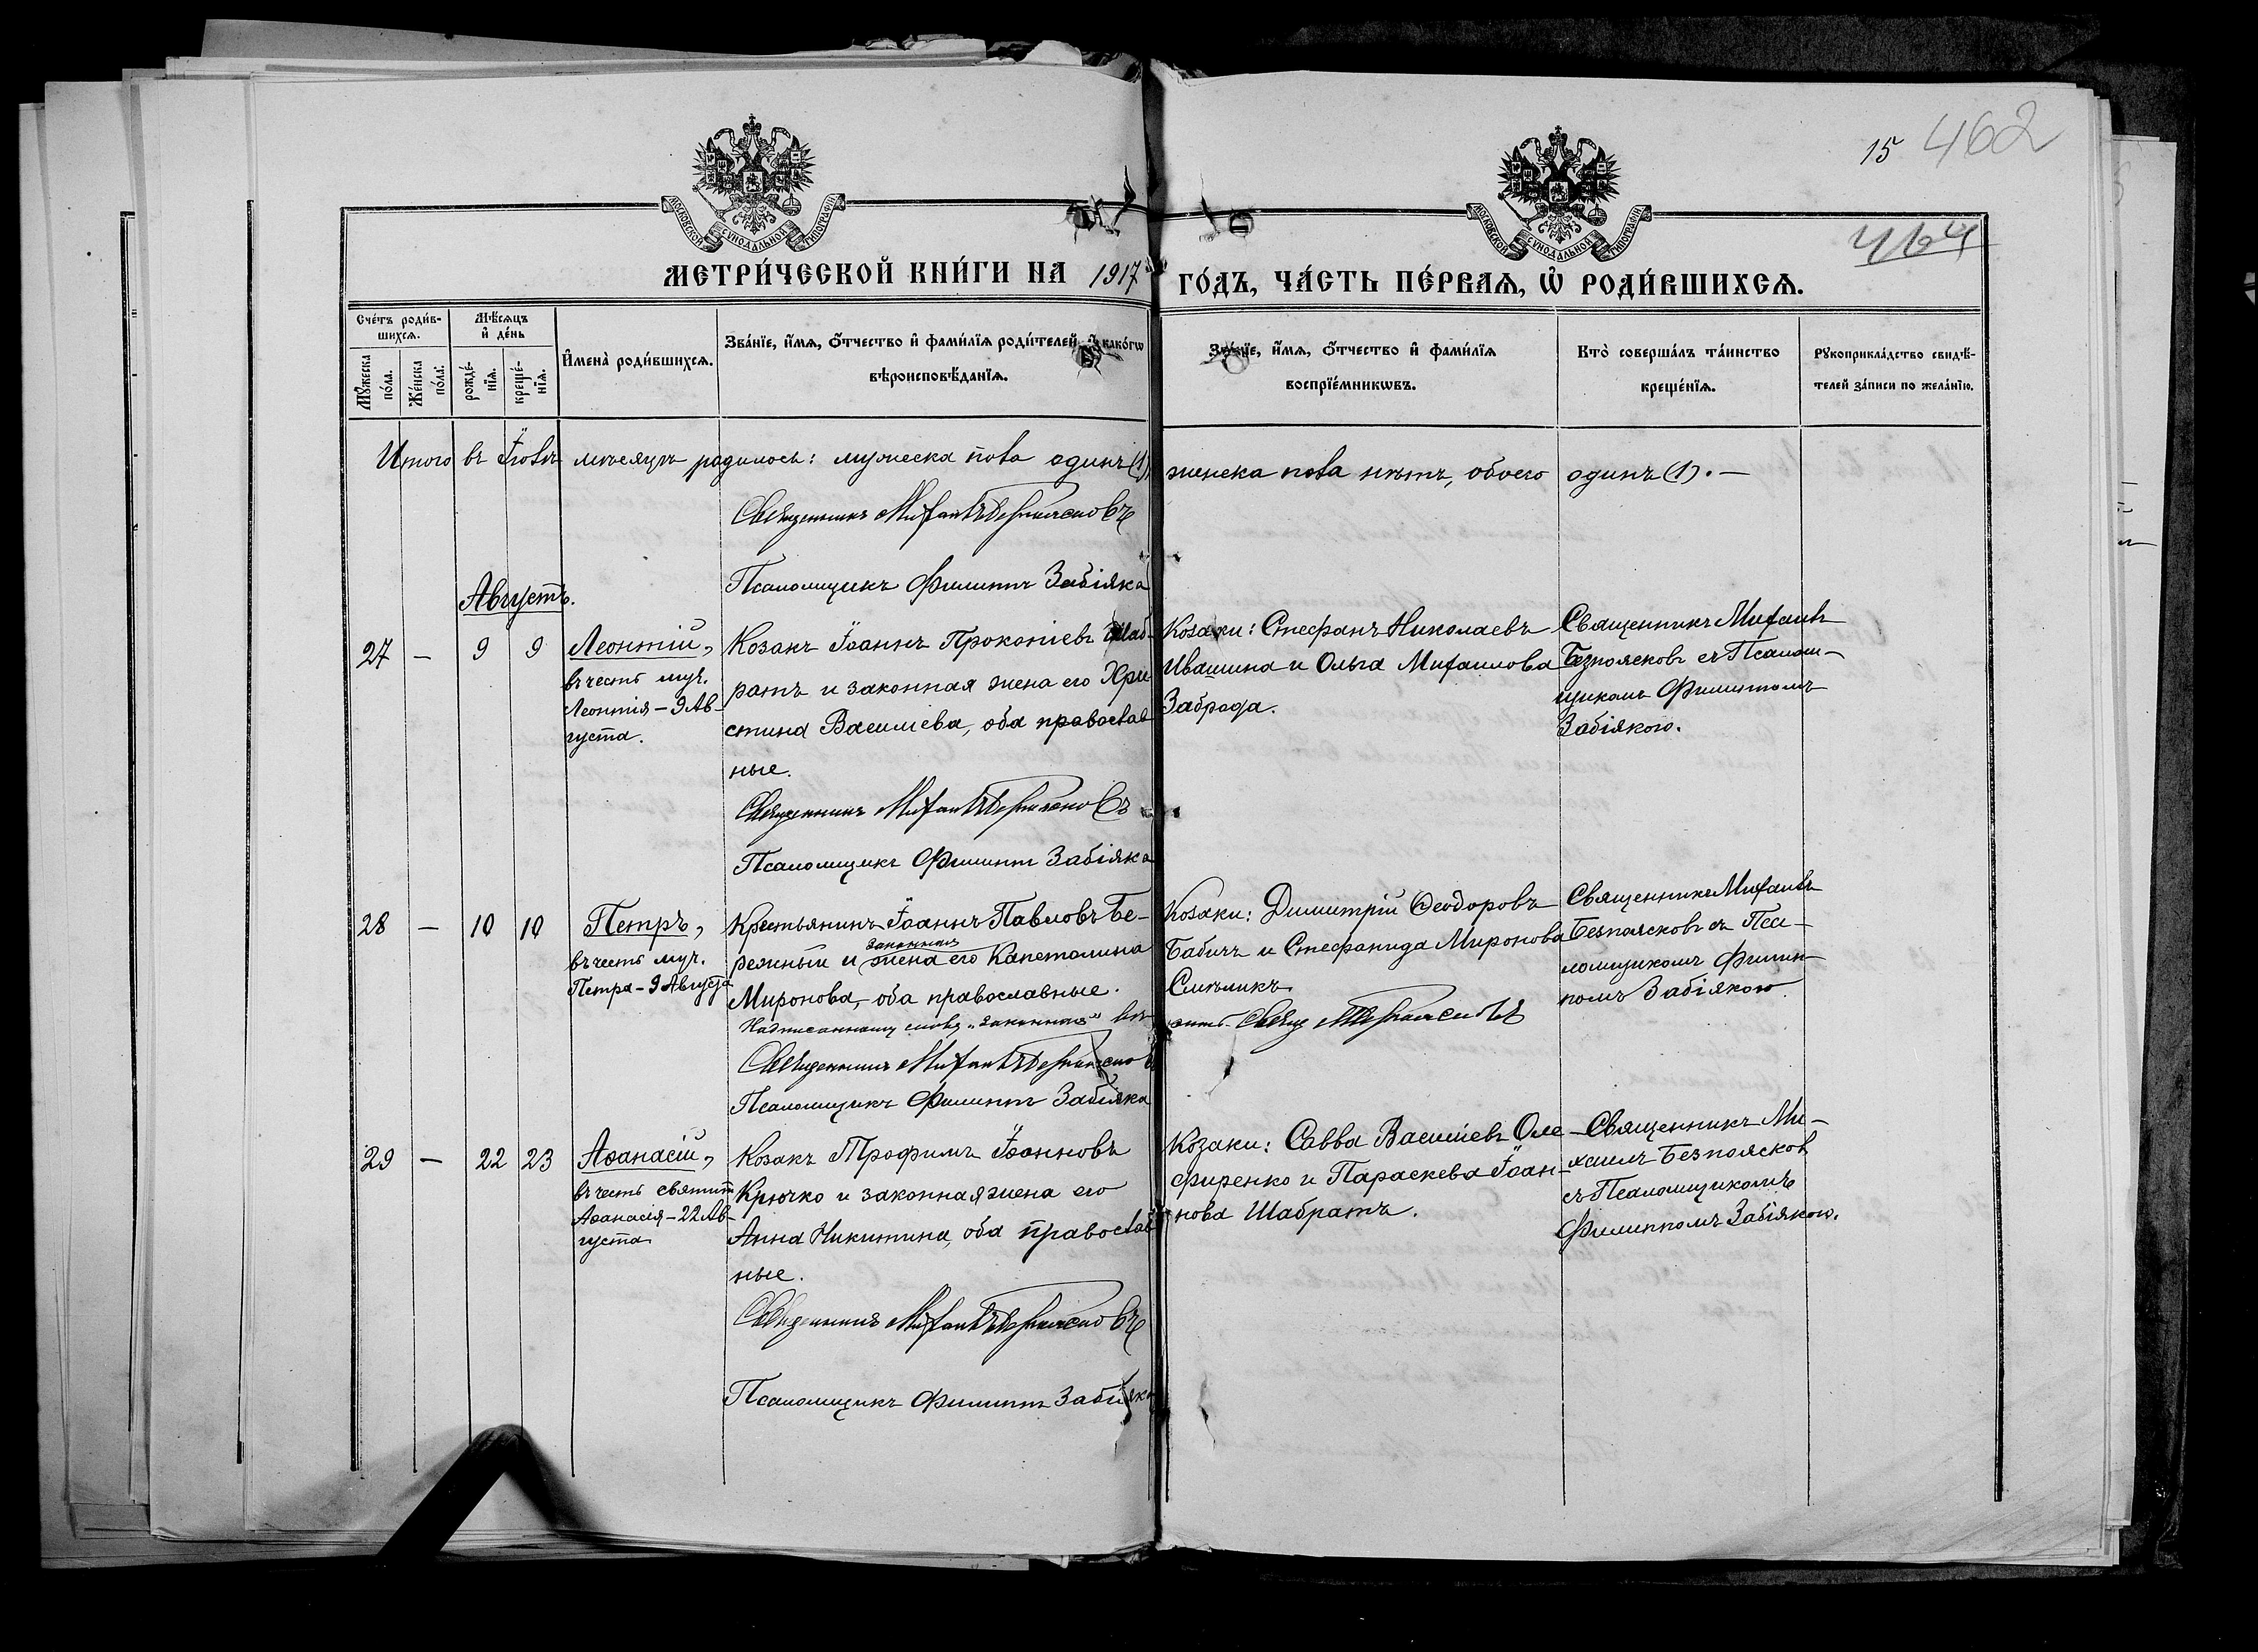 15 462
464
МОСКОВСКОЙ СѴНОДАЛЬНОЙ ТИПОГРАФІИ
МОСКОВСКОЙ СѴНОДАЛЬНОЙ ТИПОГРАФІИ
МЕТРИ́ЧЕСКОЙ КНИ́ГИ НА 1917 ГО́ДЪ, ЧА́СТЬ ПЕ́РВАѦ, Ѡ҆ РОДИ́ВШИХСѦ.
Сче́тъ роди́в-
шихсѧ.
Мꙋ́жеска по́ла.
Же́нска по́ла.
Мѣ́сѧцъ
и҆ де́нь
рожде́-
нїѧ.
креще́-
нїѧ.
И҆мена̀ роди́вшихсѧ.
Зва́нїе, и҆́мѧ, ѻ҆́тчество и҆ фами́лїѧ роди́телей, и҆ како́гѡ
вѣроисповѣ́данїѧ.
Зва́нїе, и҆́мѧ, ѻ҆́тчество и҆ фами́лїѧ
воспрїе́мникѡвъ.
Кто̀ соверша́лъ та́инство
креще́нїѧ.
Рꙋкоприкла́дство свидѣ́-
телей за́писи по жела́нїю.
Итого въ Іюлѣ мѣсяцѣ родилось: мужеска пола одинъ (1), женска пола нѣтъ, обоего одинъ (1). —
Священникъ Михаилъ Безпоясковъ
Псаломщикъ Филиппъ Забіяка
Августъ.
27 — 9 9
Леонтій,
въ честь муч.
Леонтія – 9 Ав-
густа.
Козакъ Іоаннъ Прокопіевъ Шаб-
ратъ и законная жена его Хри
стина Василіева, оба православ
ные.
Священникъ Михаилъ Безпоясковъ
Псаломщикъ Филиппъ Забіяка
Козаки: Стефанъ Николаевъ
Ивашина и Ольга Михаилова
Заброда.
Священникъ Михаилъ
Безпоясковъ съ Псалом-
щикомъ Филиппомъ
Забіякою.
28 — 10 10
Петръ,
въ честь муч.
Петра – 9 Августа
Крестьянинъ Іоаннъ Павловъ Бе-
законная
режный и жена его Капетолина
Миронова, оба православные.
Надписанному слову „законная" вѣ
Священникъ Михаилъ Безпоясковъ
Псаломщикъ Филиппъ Забіяка
Козаки: Димитрій Ѳеодоровъ
Бабичъ и Стефанида Миронова
Смѣликъ
рить. Свящ. М Безпоясковъ
Священникъ Михаилъ
Безпоясковъ съ Пса-
ломщикомъ Филип-
помъ Забіякою.
29 — 22 23
Аѳанасій,
въ честь святит
Аѳанасія – 22 Ав-
густа
Козакъ Трофимъ Іоанновъ
Крючко и законная жена его
Анна Никитина, оба православ
ные.
Священникъ Михаилъ Безпоясковъ
Псаломщикъ Филиппъ Забіяка
Козаки: Савва Василіевъ Оле-
фиренко и Параскева Іоан-
нова Шабратъ.
Священникъ Ми-
хаилъ Безпоясковъ
съ Псаломщикомъ
Филиппомъ Забіякою.